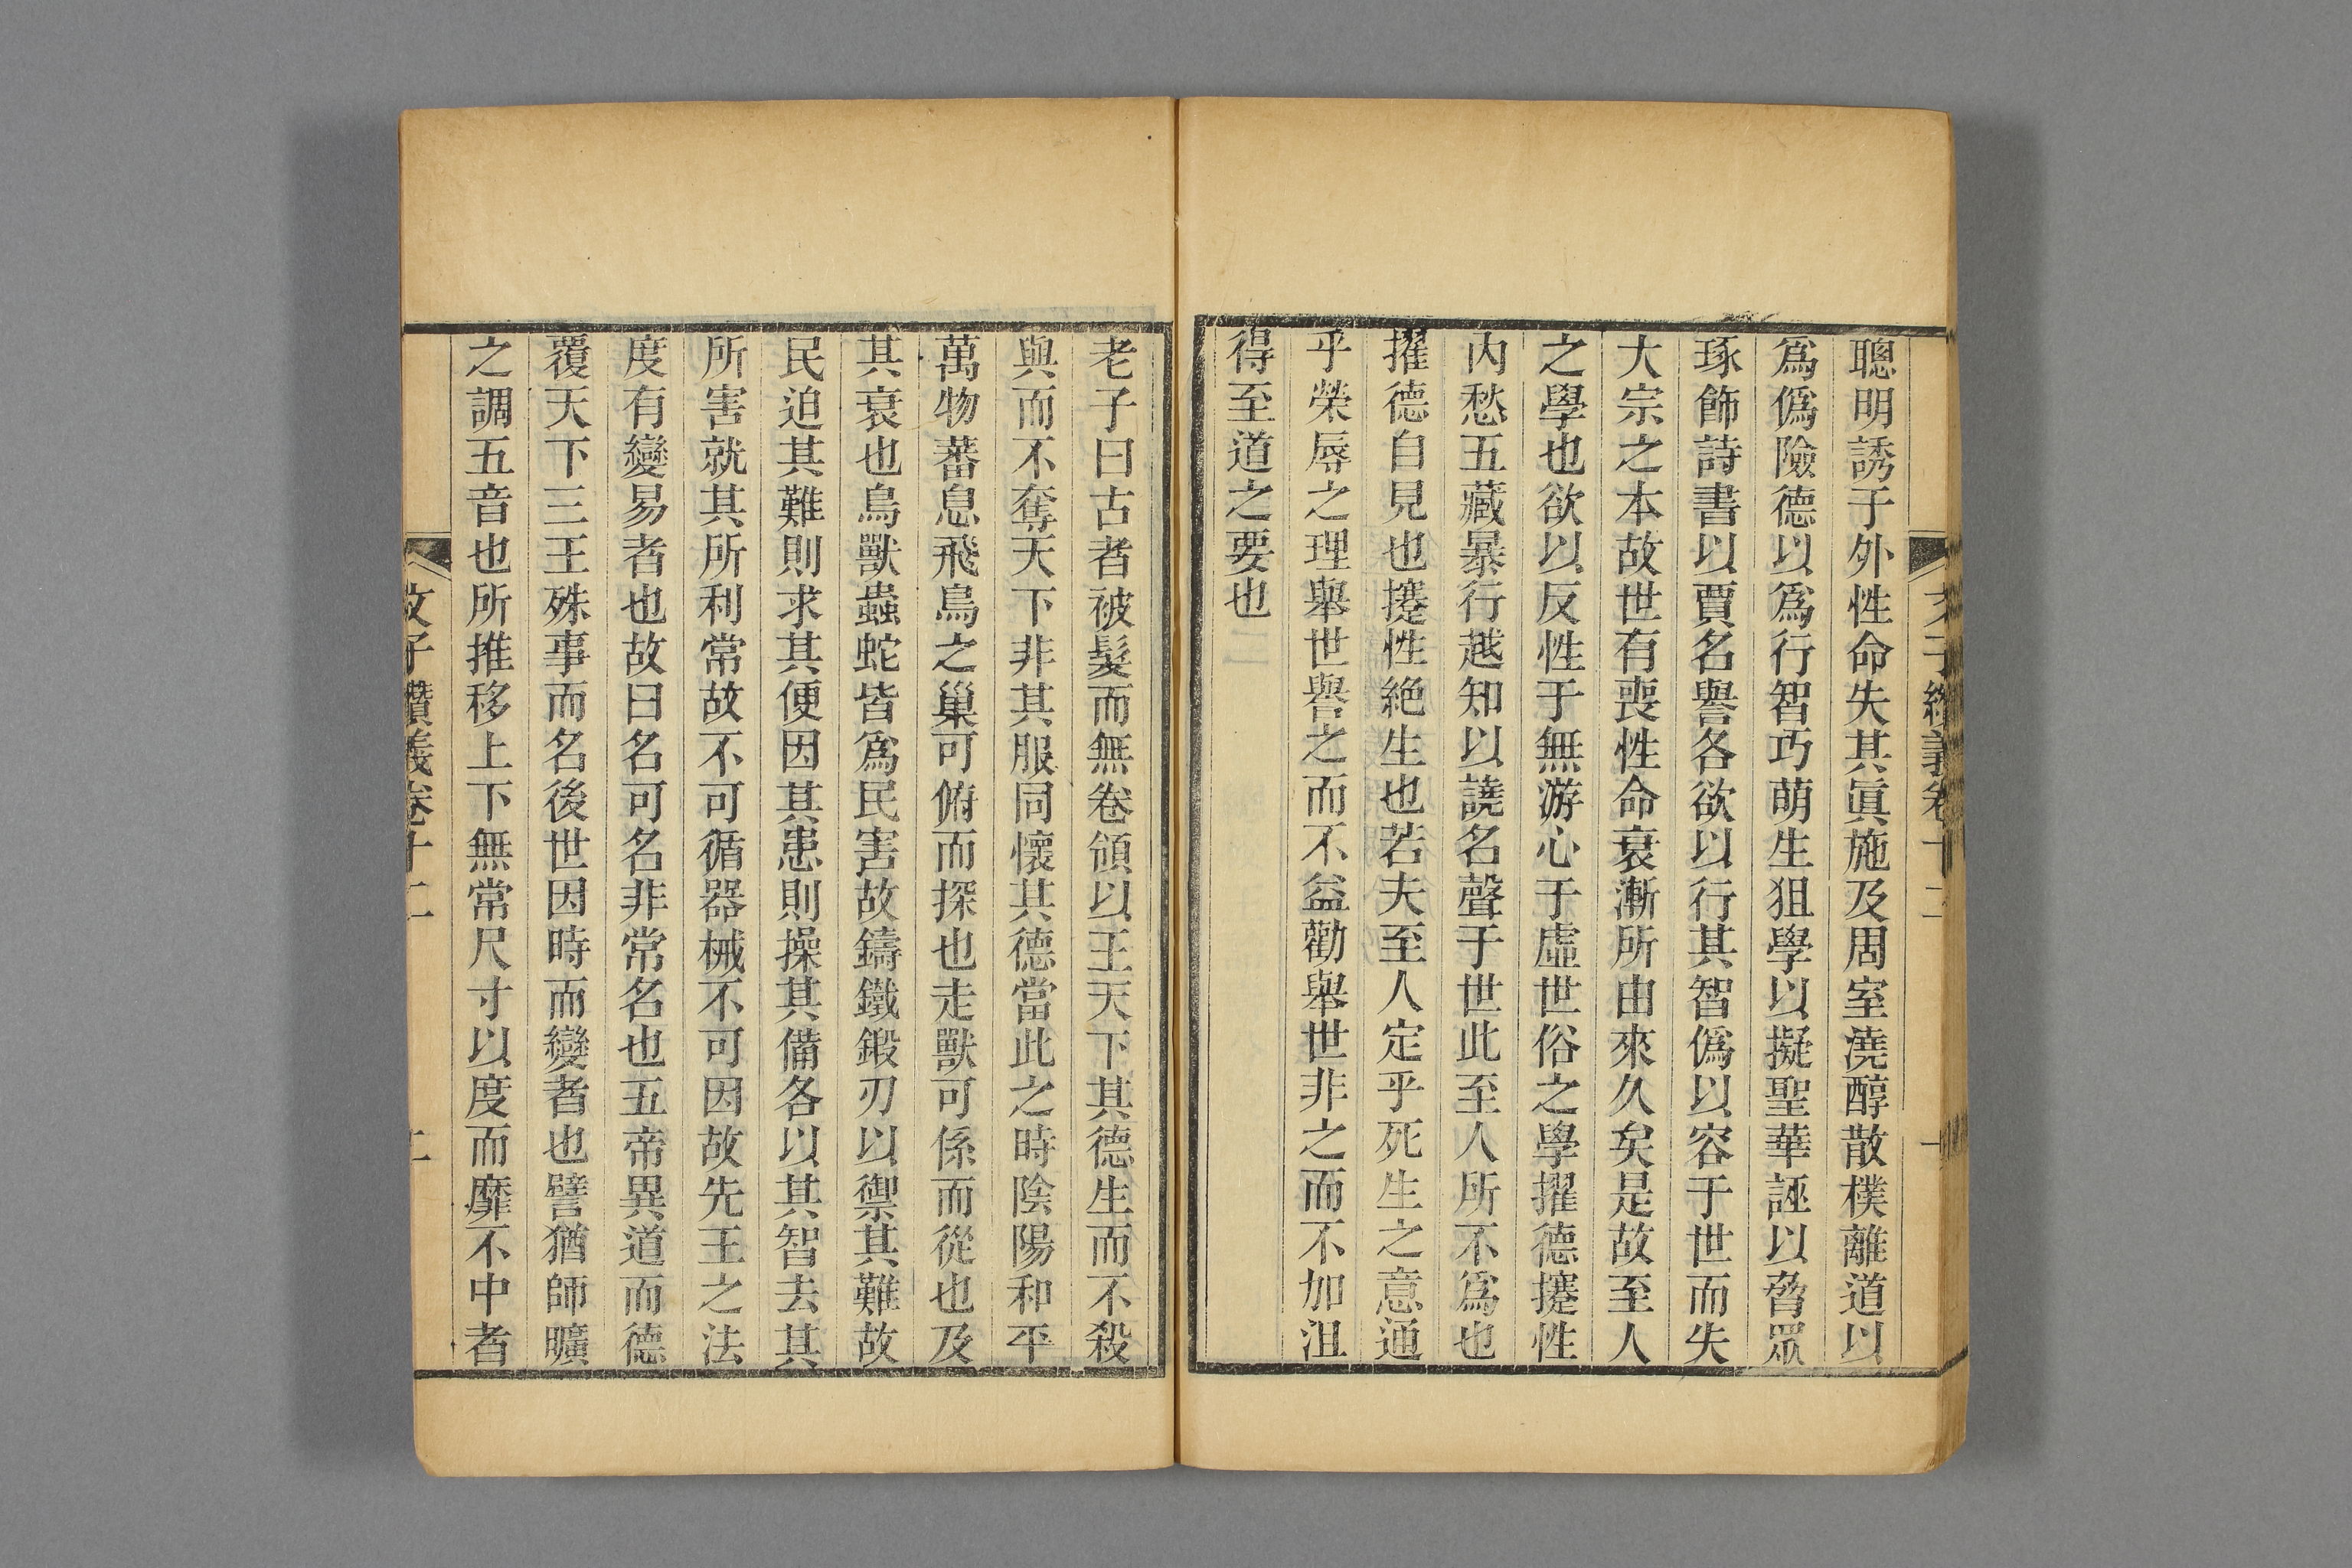 聰明誘于外性命失其眞施及周室澆醇散樸離道以
爲僞險德以爲行智巧萌生狙學以擬聖華誣以脅眾
琢飾詩書以賈名譽各欲以行其智僞以容于世而失
大宗之本故世有喪性命衰漸所由來久矣是故至人
之學也欲以反性于無游心于虛世俗之學擢德攓性
內愁五藏暴行越知以譊名聲于世此至人所不爲也
擢德自見也攓性絶生也若夫至人定乎死生之意通
乎榮辱之理舉世譽之而不益勸舉世非之而不加沮
得至道之要也
老子曰古者被髮而無卷領以王天下其德生而不殺
與而不奪天下非其服同懷其德當此之時陰陽和平
萬物蕃息飛鳥之巢可俯而探也走獸可係而從也及
其衰也鳥獸蟲蛇皆爲民害故鑄鐵鍛刃以禦其難故
民迫其難則求其便因其患則操其備各以其智去其
所害就其所利常故不可循器械不可因故先王之法
度有變易者也故曰名可名非常名也五帝異道而德
覆天下三王殊事而名後世因時而變者也譬猶師曠
之調五音也所推移上下無常尺寸以度而靡不中者
文子纘義卷十二
二